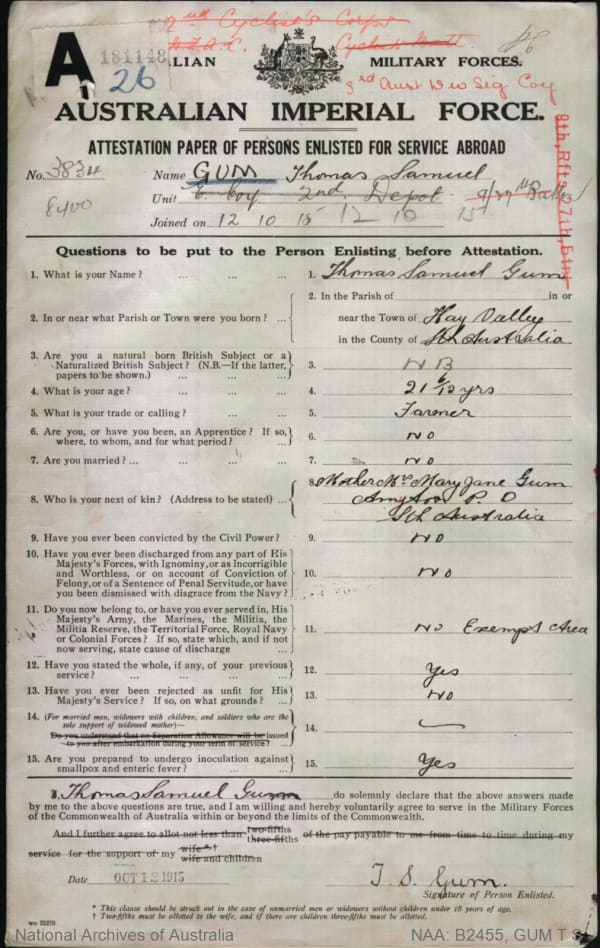 2nd Cyclist's Corps
A
181148
26
ALIAN MILITARY FORCES.
46
3rd Aust Div Sig Coy
AUSTRALIAN IMPERIAL FORCE.
ATTESTATION PAPER OF PERSONS ENLISTED FOR SERVICE ABROAD
No. 3834 Name GUM Thomas Samuel
8400 Unit E Coy 2nd Depot 9/27th Battn
Joined on 12 10 15 12 10 15
9th. Rfts 27th. Btn.
Questions to be put to the Person Enlisting before Attestation.
1. What is your Name? ... ... ... 1. Thomas Samuel Gum
2. In or near what Parish or Town were you born? ... 2. In the Parish of in or
near the Town of Hay Valley
in the County of Sth Australia
3. Are you a natural born British Subject or a
Naturalized British Subject? (N.B.—If the latter,
papers to be shown.) ... ... 3. N B
4. What is your age? ... ... ... 4. 21 6/12 yrs
5. What is your trade or calling? ... ... 5. Farmer
6. Are you, or have you been, an Apprentice? If so,
where, to whom, and for what period? ... 6. No
7. Are you married? ... ... ... ... 7. No
8. Who is your next of kin? (Address to be stated) ... 8. Mother Mrs Mary Jane Gum
P. O
Sth Australia
9. Have you ever been convicted by the Civil Power? 9. No
10. Have you ever been discharged from any part of His
Majesty's Forces, with Ignominy, or as Incorrigible
and Worthless, or on account of Conviction of
Felony, or of a Sentence of Penal Servitude, or have
you been dismissed with disgrace from the Navy? 10. No
11. Do you now belong to, or have you ever served in, His
Majesty's Army, the Marines, the Militia, the
Militia Reserve, the Territorial Force, Royal Navy
or Colonial Forces? If so, state which, and if not
now serving, state cause of discharge ... 11. No Exempt Area
12. Have you stated the whole, if any, of your previous
service? ... ... ... ... 12. Yes
13. Have you ever been rejected as unfit for His
Majesty's Service? If so, on what grounds? ... 13. No
14. (For married men, widowers with children, and soldiers who are the
sole support of widowed mother)—
Do you understand that no Separation Allowance will be issued
to you after embarkation during your term of service? ... 14.
15. Are you prepared to undergo inoculation against
smallpox and enteric fever? ... ... ... 15. Yes
I, Thomas Samuel Gum do solemnly declare that the above answers made
by me to the above questions are true, and I am willing and hereby voluntarily agree to serve in the Military Forces
of the Commonwealth of Australia within or beyond the limits of the Commonwealth.
And I further agree to allot not less than two-fifths three-fifths of the pay payable to me from time to time during my
service for the support of my wife *† wife and children
Date OCT 12 1915
T. S. Gum.
Signature of Person Enlisted.
* This clause should be struck out in the case of unmarried men or widowers without children under 18 years of age.
† Two-fifths must be allotted to the wife, and if there are children three-fifths must be allotted.
National Archives of Australia NAA: B2455, GUM T S